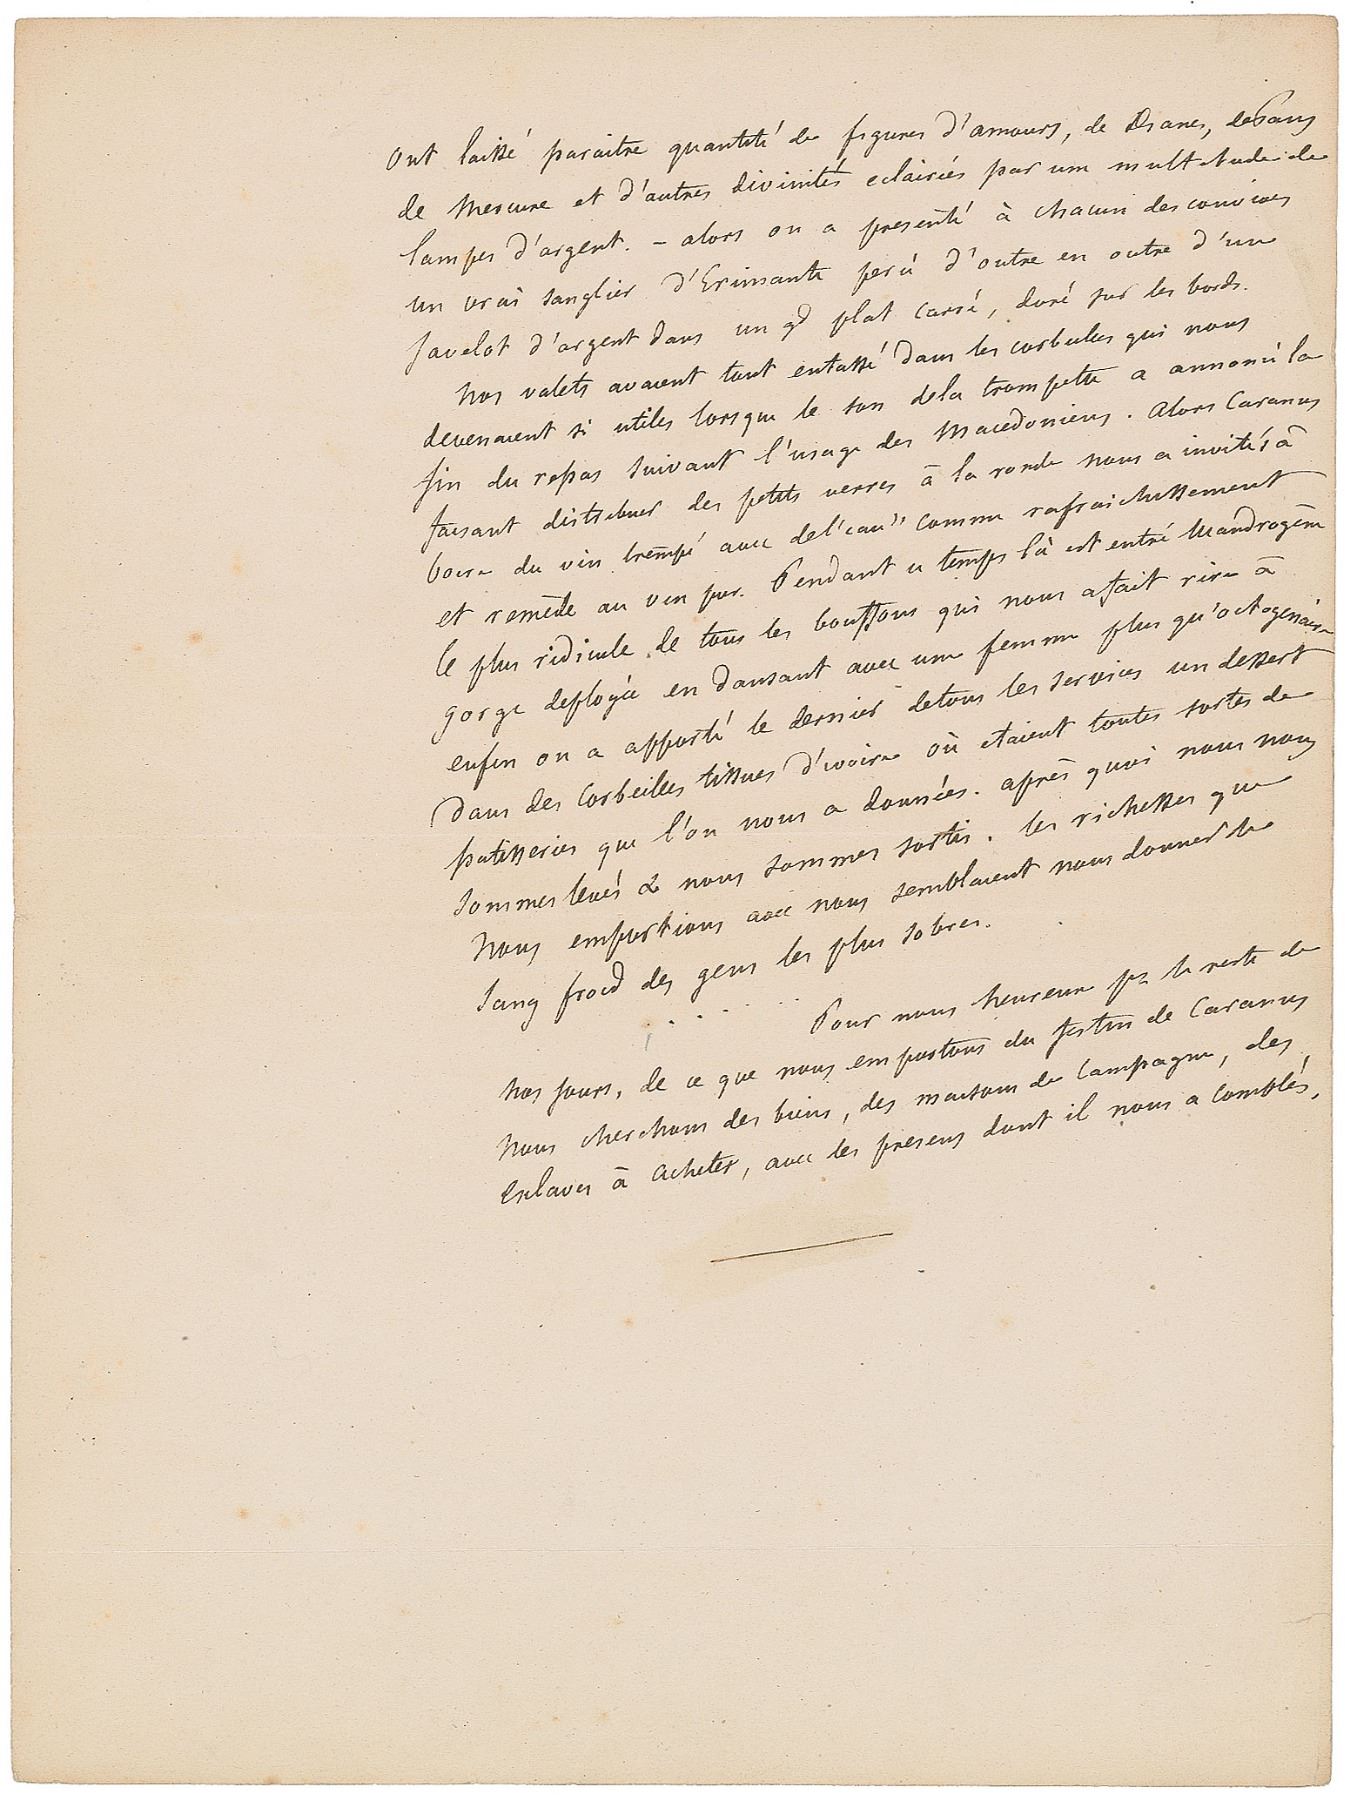 ont laissé paraitre quantité de figures d'amours, de Dianes, de Pans
de Mercure et d'autres divinités eclairées par une multitude de
lampes d'argent. – alors on a presenté à chacun des convives
un vrai sanglier d'Erimante percé d'outre en outre d'un
javelot d'argent dans un gd plat carré, doré sur les bords.
Nos valets avaient tout entassé dans les corbeilles qui nous
devenaient si utiles lorsque le son de la trompette a annoncé la
fin du repas suivant l'usage des Macedoniens. Alors Caranus
faisant distribuer des petits verres à la ronde nous a invités à
boire du vin trempé avec de l'eau" comme rafraichissement
et remède au vin pur. Pendant ce temps là est entré Mandrogène
le plus ridicule de tous les bouffons qui nous a fait rire à
gorge deployée en dansant avec une femme plus qu'octogenaire
enfin on a apporté le dernier de tous les services un dessert
dans des corbeilles tissues d'ivoire où etaient toutes sortes de
patisseries que l'on nous a données. après quoi nous nous
sommes levés & nous sommes sortis. les richesses que
nous emportions avec nous semblaient nous donner le
sang froid des gens les plus sobres.
. . . . . Pour nous heureux pr le reste de
nos jours, de ce que nous emportons du festin de Caranus
nous cherchons des biens, des maisons de campagne, des
esclaves à acheter, avec les presens dont il nous a comblés.